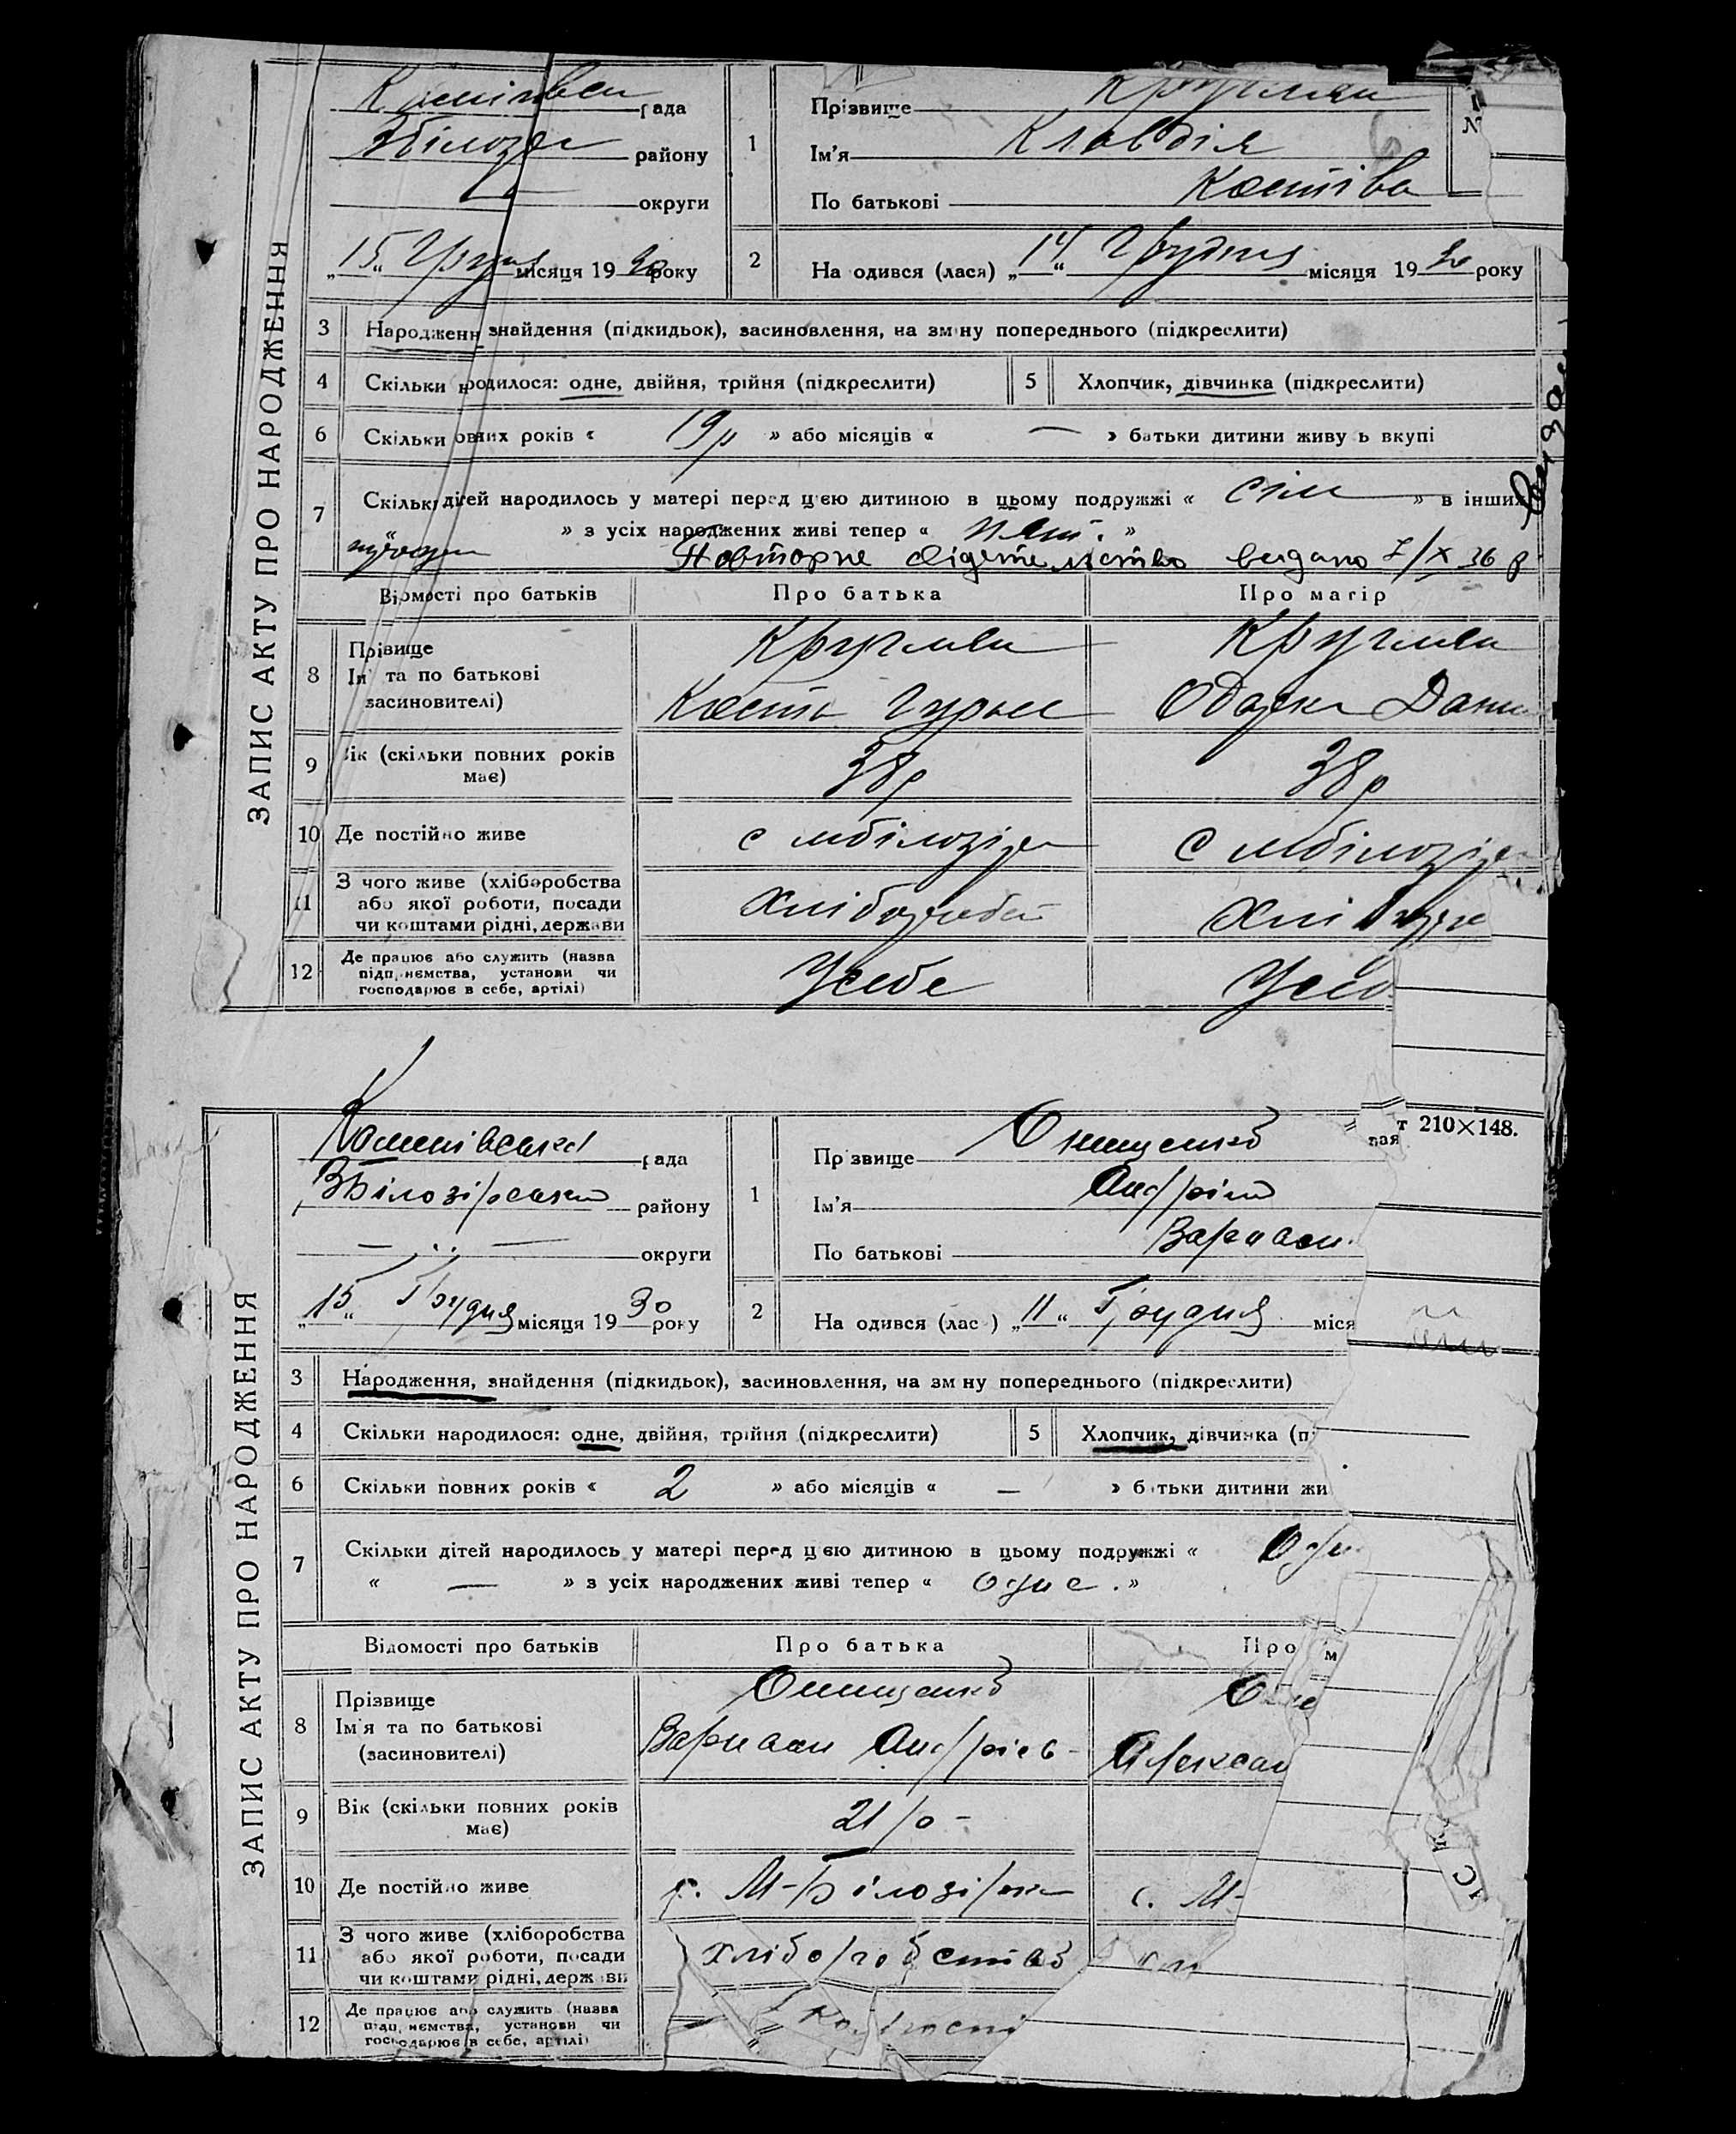 ЗАПИС АКТУ ПРО НАРОДЖЕННЯ
рада
району
округи
„15“ місяця 19 30 року
1
Прізвище
Ім'я Клавдія
По батькові Костіва
2
На одився (лася) „14“ Грудня місяця 19 30 року
3 Народженн знайдення (підкидьок), засиновлення, на зм ну попереднього (підкреслити)
4 Скільки народилося: одне, двійня, трійня (підкреслити)
5 Хлопчик, дівчинка (підкреслити)
6 Скільки овних років « 19р » або місяців « — » батьки дитини живу ь вкупі
7 Скільки дітей народилось у матері перед цією дитиною в цьому подружжі « сім » в інших
» з усіх народжених живі тепер « »
Повторне свідетельство видано Х 36 р
Відомості про батьків Про батька Про матір
8 Прізвище
Ім' та по батькові
засиновителі)
Кость Одарка
9 Вік (скільки повних років має) 38р 38р
10 Де постійно живе с мбілозірка с мбілозірка
11 З чого живе (хліборобства
або якої роботи, посади
чи коштами рідні, держави
12 Де працює або служить (назва
підп, иємства, установи чи
господарює в себе, артілі)
Усебе
ЗАПИС АКТУ ПРО НАРОДЖЕННЯ
т 210×148.
Костівська рада
ВБілозірського району
— округи
„15“ Грудня місяця 19 30 року
1
Пр звище Онищенко
Ім'я Андрій
По батькові Варлаам
2
На одився (лас ) „11“ Грудня міся
3 Народження, знайдення (підкидьок), засиновлення, на зм ну попереднього (підкреслити)
4 Скільки народилося: одне, двійня, трійня (підкреслити)
5 Хлопчик, дівчинка (п
6 Скільки повних років « 2 » або місяців « — » б тьки дитини жи
7 Скільки дітей народилось у матері перед цією дитиною в цьому подружжі «
« — » з усіх народжених живі тепер « одне . »
Відомості про батьків Про батька Про м
8 Прізвище
Ім'я та по батькові
(засиновителі)
Онищенко
Варлаам Андрієв- Алексан
9 Вік (скільки повних років має) 21 р -
10 Де постійно живе с. М-Білозірка с. М-
11 З чого живе (хліборобства
або якої роботи, посади
чи коштами рідні, держ ви
хліборобство
12 Де працює або служить (назва
підп, иємства, установи чи
господарює в себе, артілі)